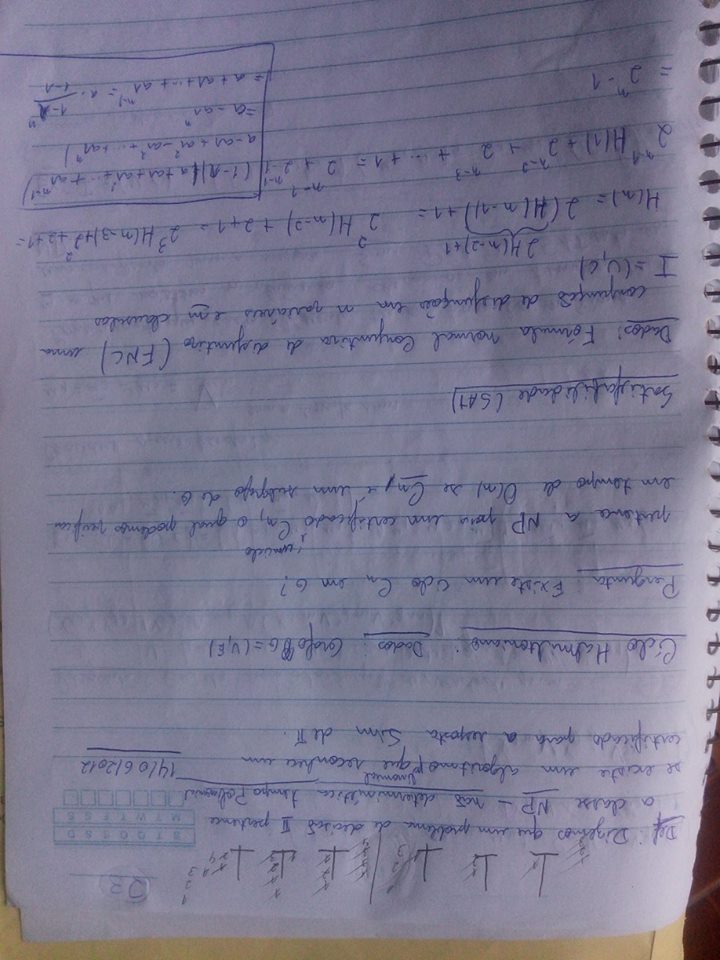 D2
STQQSSD
MTWTFSS
Def: Dizemos que um problema de decisão Π pertence
a classe NP - não determinística tempo Polinomial
se existe um algoritmo que reconhece um
14/06/2012
certificado para a resposta Sim de Π.
Ciclo Hamiltoniano: Dados: Grafo G=(V,E)
Pergunta Existe um ciclo Cn em G?
pertence a NP pois um certificado Cn, o qual podemos verificar
em tempo de O(n) se Cn, é um subgrafo de G.
Satisfabilidade (SAT)
Dados: Fórmula normal Conjuntiva de disjuntiva (FNC) uma
conjunção de disjunção em n variáveis e m clausulas
I=(U,C)
2H(n-2)+1
H(n) = 2(H(n-1))+1 = 2² H(n-2)+2+1 = 2³ H(n-3)+2²+2+1 =
2ⁿ⁻¹ H(1) + 2ⁿ⁻² + 2ⁿ⁻³ + ... + 1 = 2ⁿ⁻¹ + 2ⁿ⁻¹-1
= 2ⁿ-1
(1-r)(a+ar+ar²+...+arⁿ⁻¹)
a-ar+ar-ar²+...+arⁿ)
= a-arⁿ
= a+ar+...+arⁿ⁻¹ = a. 1-rⁿ
1-r